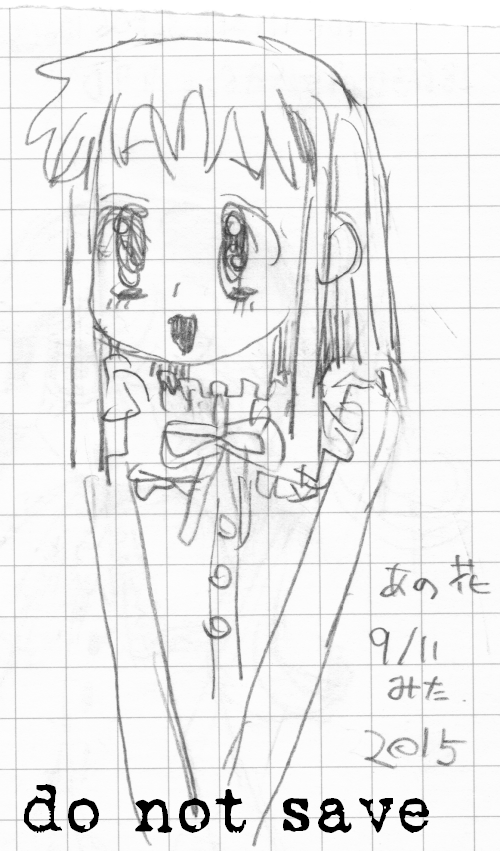 あの花
9/11
みた
2015
do not save